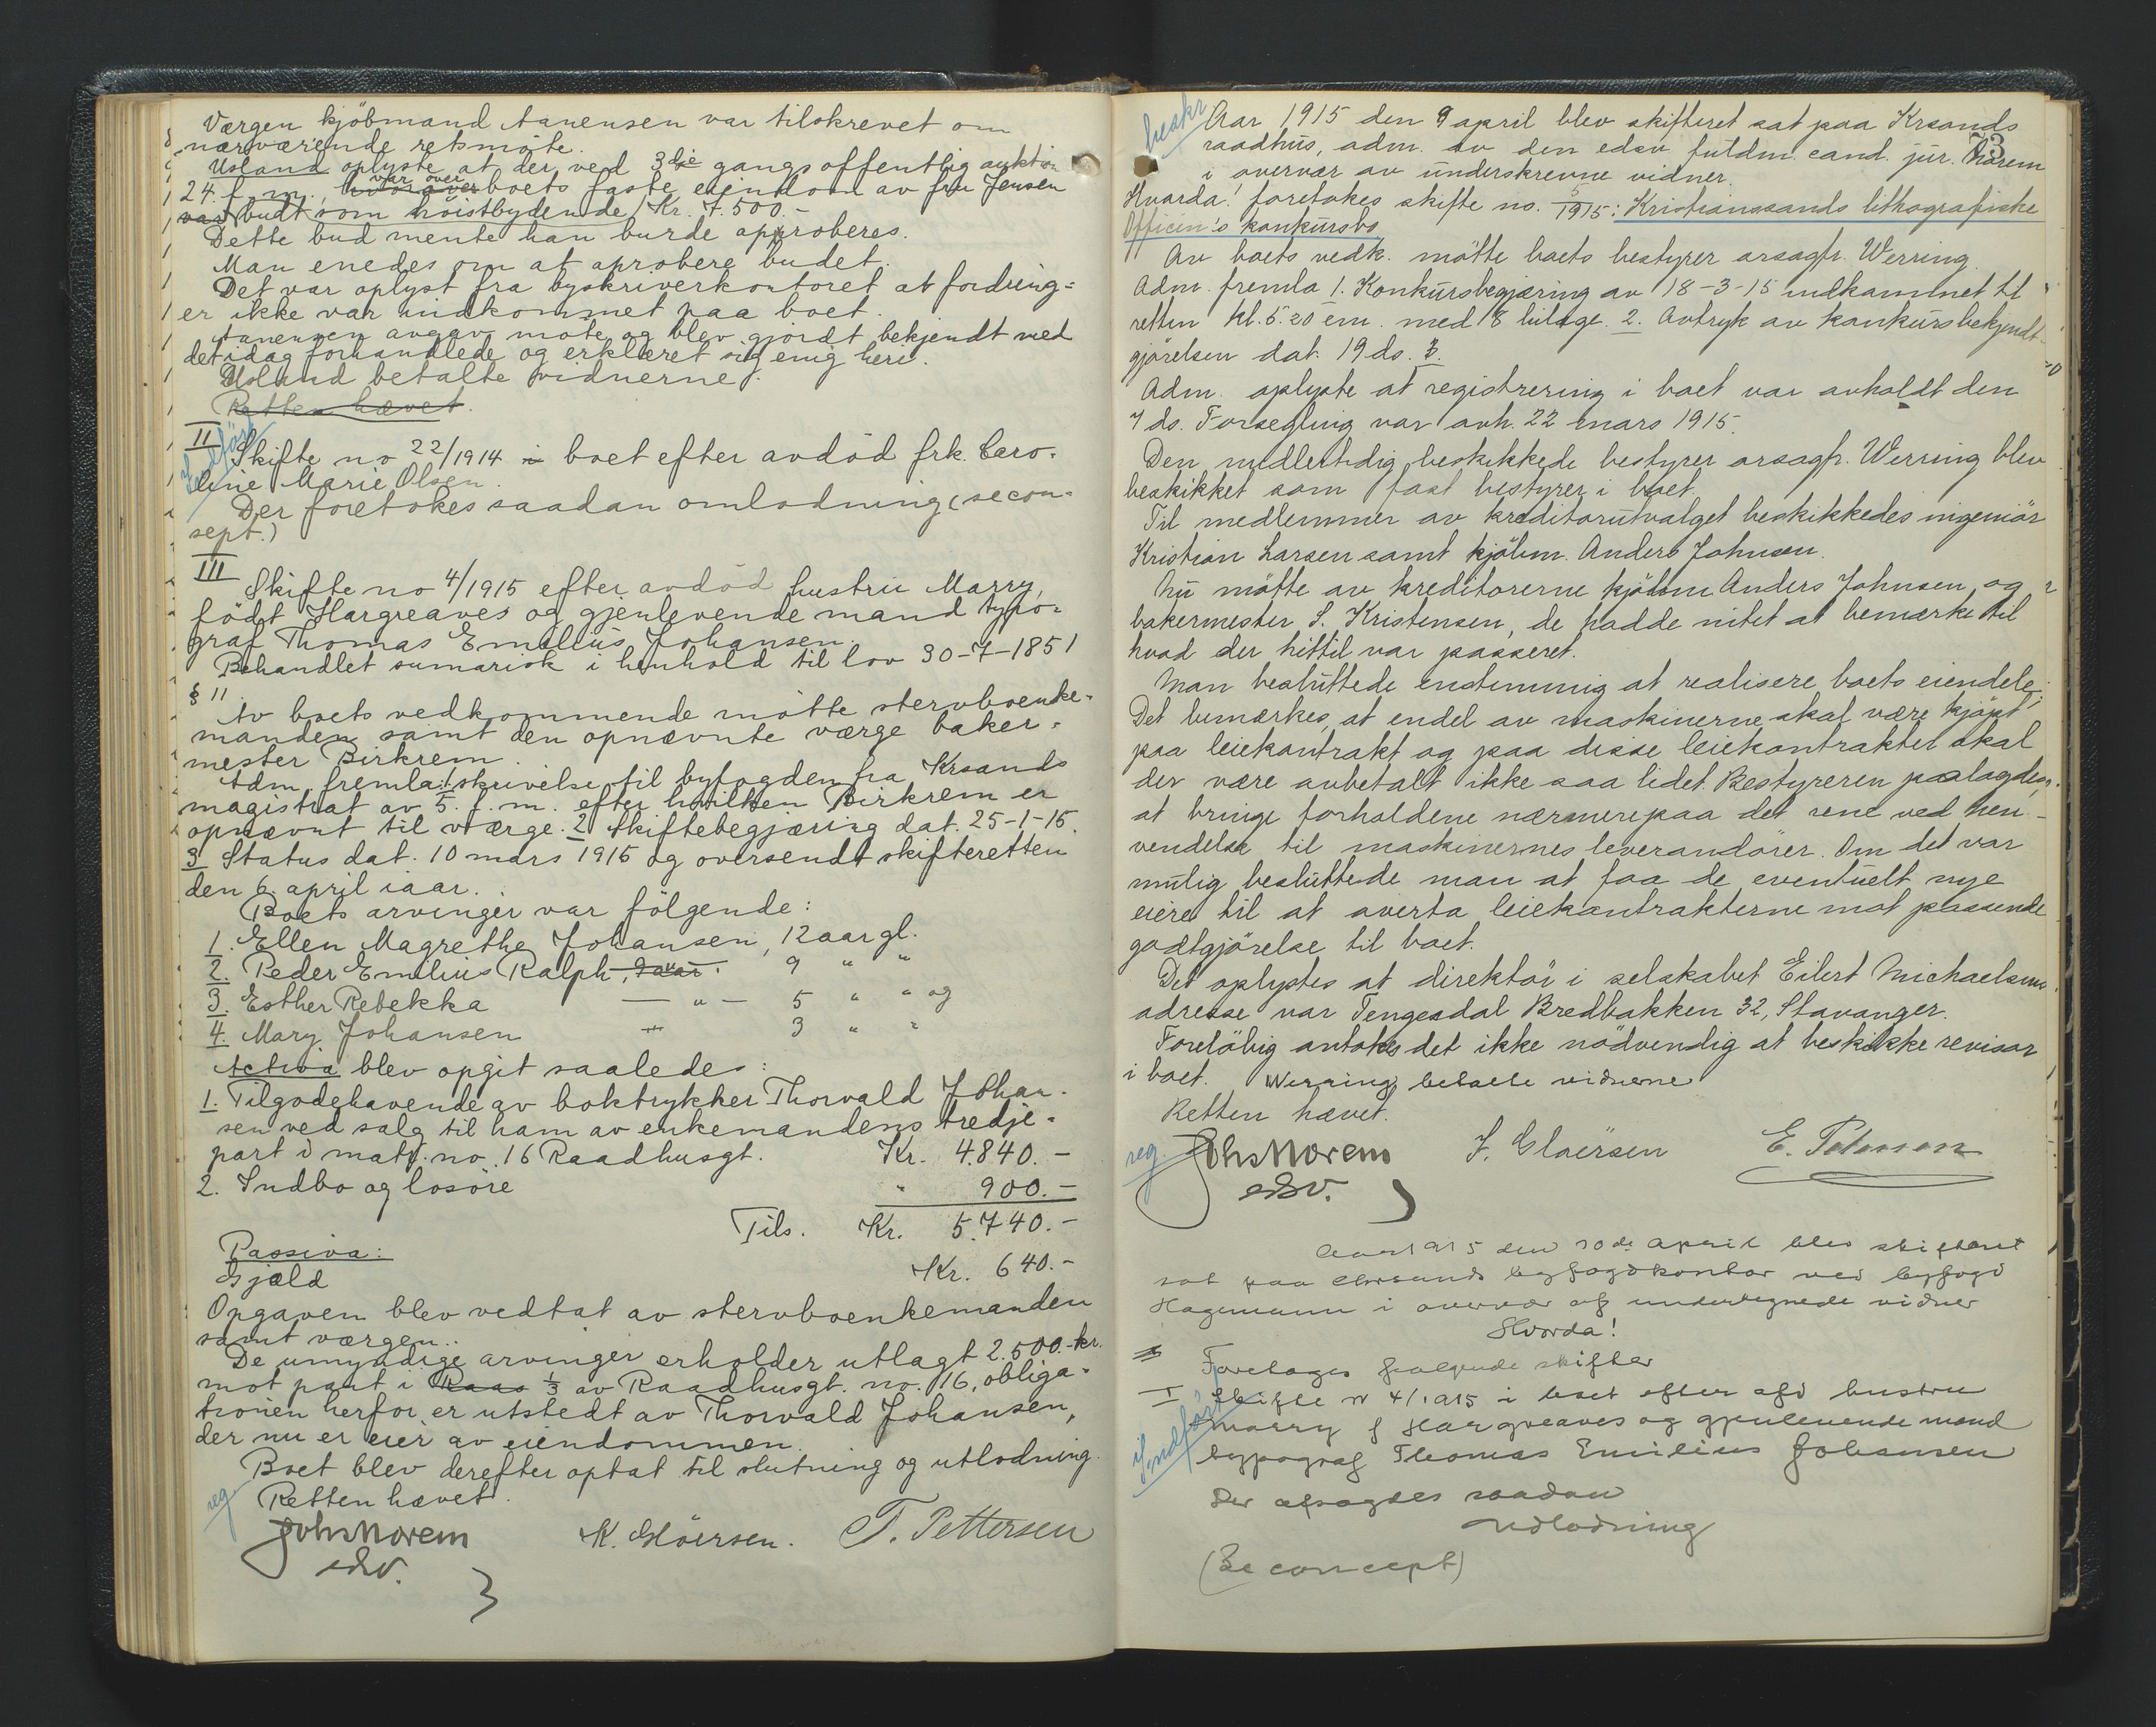 Værgen kjöbmand Aanensen var tilskrevet om
nærværende retsmöte.
Usland oplyste at der ved 3dje gangs offentlig auktion
24. f. m. var over boets faste eiendom av fru Jensen
var budt som höistbydende Kr. 7.500.-
Dette bud mente han burde approberes.
Man enedes om at aprobere budet.
Det var oplyst fra byskriverkontoret at fordring=
er ikke var indkommet paa boet.
Aanensen avgav möte og blev gjordt bekjendt med
det idag forhandlede og erklæret sig enig heri.
Usland betalte vidnerne.
Retten hævet.
II
Skifte no 22/1914 i boet efter avdöd frk. Caro=
line Marie Olsen.
Der foretokes saadan omlodning (se con=
sept.)
III
Skifte no 4/1915 efter avdöd hustru Marry,
födt Hargreaves og gjenlevende mand typo=
graf Thomas Emilius Johansen.
Behandlet sumarisk i henhold til lov 30-7-1851
§ 11.
Av boets vedkommende mötte stervboenke=
manden samt den opnævnte værge baker=
mester Birkrem.
Adm. fremla: 1. skrivelse til byfogden fra Krsands
magistrat av 5. f. m. efter hvilken Birkrem er
opnævnt til værge. 2 Skiftebegjæring dat. 25-1-15.
3 Status dat. 10 mars 1915 og oversendt skifteretten
den 6. april iaar.
Boets arvinger var fölgende:
1. Ellen Magrethe Johansen, 12 aar gl.
2. Peder Emilius Ralph, 9 aar. 9 " "
3. Esther Rebekka — " — 5 " " og
4. Mary Johansen 3 " "
Activa blev opgit saaledes:
1. Tilgodehavende av boktrykker Thorvald Johan=
sen ved salg til ham av enkemandens tredje=
part i matr. no. 16 Raadhusgt. Kr. 4.840.-
2. Indbo og lösöre " 900.-
Tils. Kr. 5.740.-
Passiva:
Gjæld Kr. 640.-
Opgaven blev vedtat av stervboenkemanden
samt værgen.
De umyndige arvinger erholder utlagt 2.500.-kr.
mot pant i Raas 1/3 av Raadhusgt. no. 16, obliga=
tionen herfor er utstedt av Thorvald Johansen,
der nu er eier av eiendommen.
Boet blev derefter optat til slutning og utlodning.
reg. Retten hævet.
Johs Morem K. Glöersen. T. Pettersen
edsv.
73
beskr Aar 1915 den 9 april blev skifteret sat paa Krsands
raadhus, adm. av den edsv. fuldm. cand. jur. Morem
i overvær av underskrevne vidner.
Hvorda! foretokes skifte no. 5/1915: Kristianssands lithografiske
Officin's konkursbo
Av boets vedk. mötte boets bestyrer orsagfr. Werring.
Adm. fremla 1. Konkursbegjæring av 18-3-15 indkommet til
retten kl. 5.20 em. med 8 bilage. 2. Avtryk av konkursbekjendt-
gjörelsen dat. 19 ds. 3.
Adm. oplyste at registrering i boet var avholdt den
7 ds. Forsegling var avh. 22 mars 1915.
Den midlertidig beskikkede bestyrer orsagfr. Werring blev
beskikket som fast bestyrer i boet.
Til medlemmer av kreditorutvalget beskikkedes ingeniör
Kristian Larsen samt kjöbm. Anders Johnsen.
Nu mötte av kreditorerne kjöbm Anders Johnsen og
bakermester S. Kristensen, de hadde intet at bemærke til
hvad der hittil var passeret.
Man besluttede enstemmig at realisere boets eiendele;
Det bemærkes, at endel av maskinerne skal være kjöpt
paa leiekontrakt og paa disse leiekontrakter skal
der være avbetalt ikke saa lidet. Bestyreren paalagdes,
at bringe forholdene nærmere paa det rene ved hen-
vendelse til maskinernes leverandörer. Om det var
mulig besluttede man at faa de eventuelt nye
eiere til at overta leiekontrakterne mot passende
godtgjörelse til boet.
Det oplystes at direktör i selskabet Eilert Michaelsens
adresse var Tengesdal Bredbakken 32, Stavanger.
Forelöbig antokes det ikke nödvendig at beskikke revisor
i boet. Werring betalte vidnerne
Retten hævet.
reg. Johs Morem J. Gloersen E. Petersen
edsv.
Aar 1915 den 10de April blev skifteret
sat paa Chrsands byfogdkontor ved byfogd
Hagemann i overvær af undertegnede vidner
Hvorda!
Foretoges følgende skifter
I Skifte nr 4/1915 i boet efter afd hustru
Marry f Hargreaves og gjenlevende mand
typograf Thomas Emilius Johansen
Indfört
Der afsagdes saadan
Udlodning
(Se concept)